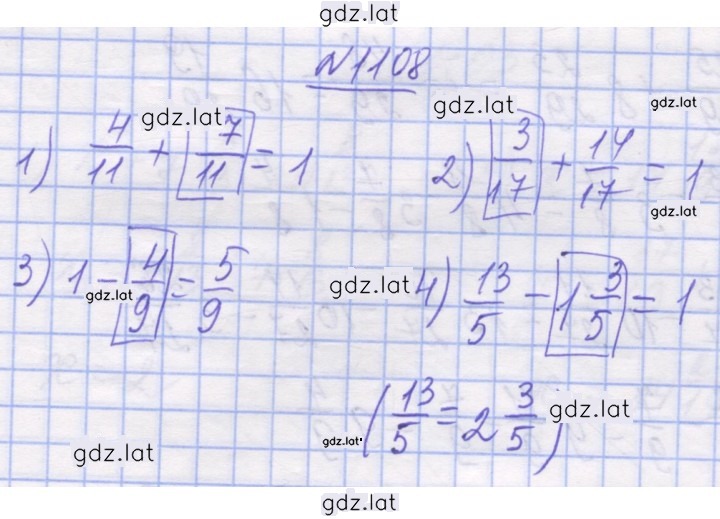 gdz.lat
№1108
gdz.lat gdz.lat gdz.lat
1) 4/11 + 7/11 = 1 2) 3/17 + 14/17 = 1
gdz.lat
3) 1 - 4/9 = 5/9 4) 13/5 - 1 3/5 = 1
gdz.lat gdz.lat
(13/5 = 2 3/5)
gdz.lat gdz.lat gdz.lat
gdz.lat